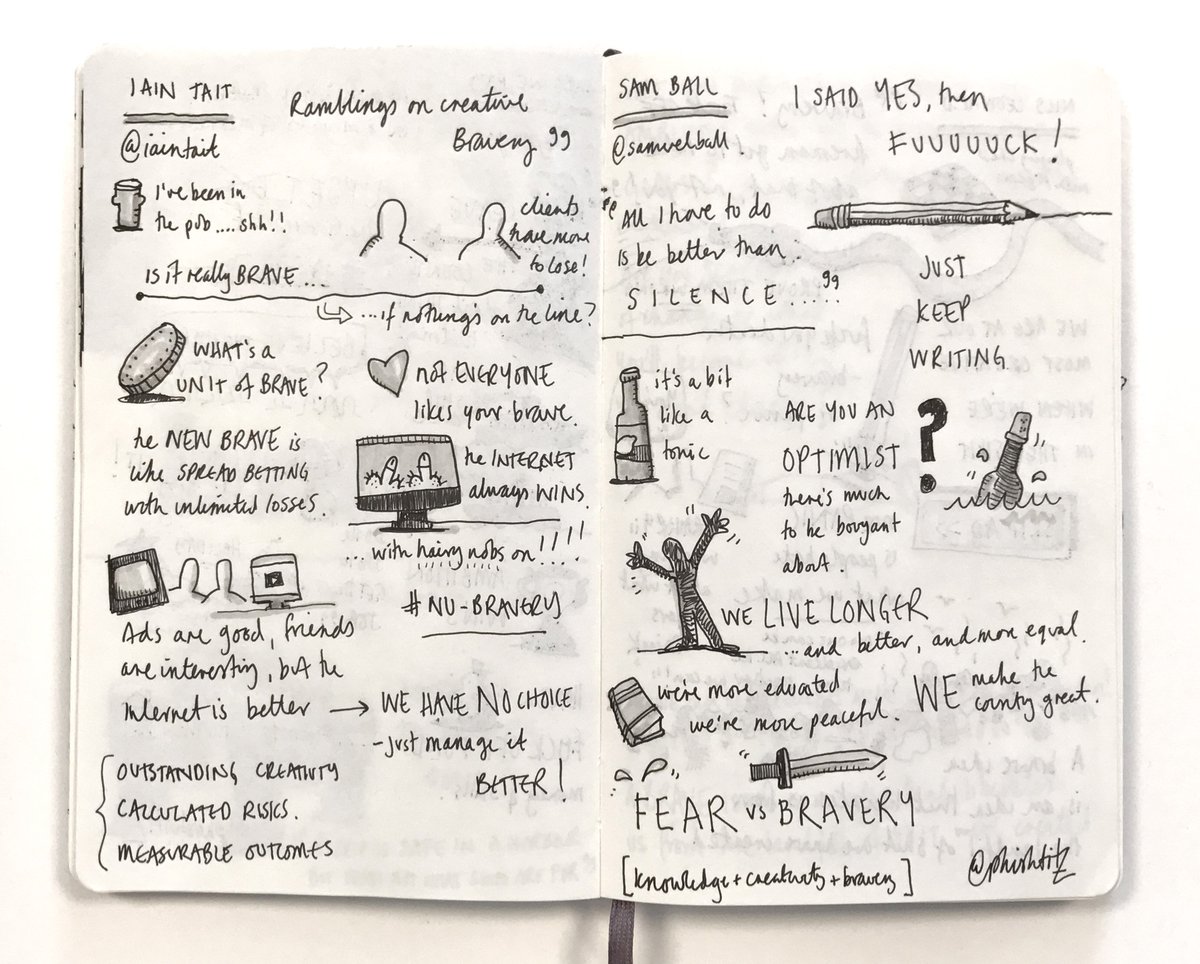 IAIN TAIT
@iaintait
Ramblings on creative
Bravery 99
I've been in
the pub....shh!!
clients
have more
to lose!
Is it really BRAVE...
...if nothing's on the line?
WHAT'S A
UNIT of BRAVE?
not EVERYONE
likes your brave.
the NEW BRAVE is
like SPREAD BETTING
with unlimited losses.
the INTERNET
always WINS.
...with hairy nobs on!!!!
#NU-BRAVERY
Ads are good, friends
are interesting, but the
Internet is better → WE HAVE NO CHOICE
-just manage it
BETTER!
OUTSTANDING CREATIVITY
CALCULATED RISKS.
MEASURABLE OUTCOMES
SAM BALL
@samuelball.
I SAID YES, then
FUUUUUCK!
All I have to do
is be better than
SILENCE....99
JUST
KEEP
WRITING
it's a bit
like a
tonic
ARE YOU AN
OPTIMIST
?
there's much
to be bouyant
about.
WE LIVE LONGER
...and better, and more equal.
we're more educated
we're more peaceful.
WE make the
country great.
FEAR vs BRAVERY
[knowledge+creativity+bravery]
@phishtitz